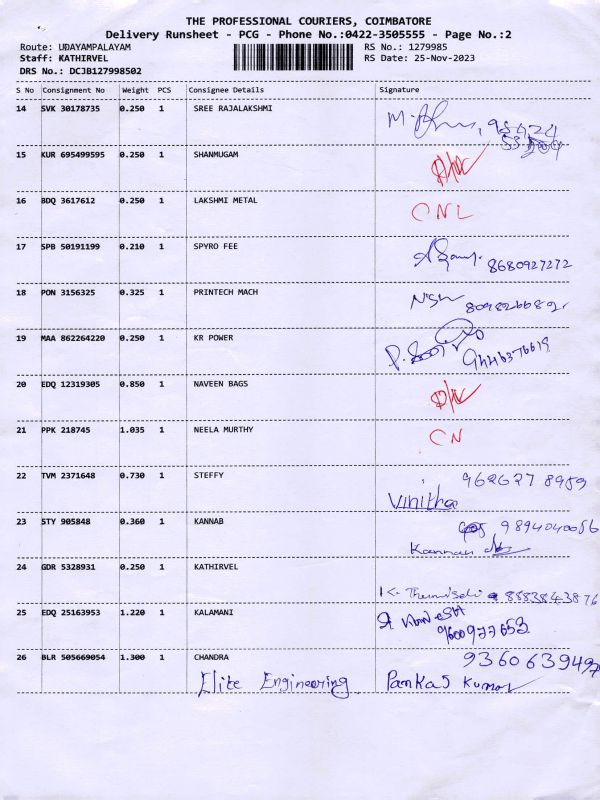 THE PROFESSIONAL COURIERS, COIMBATORE
Delivery Runsheet - PCG - Phone No.:0422-3505555 - Page No.:2
Route: UDAYAMPALAYAM RS No.: 1279985
Staff: KATHIRVEL RS Date: 25-Nov-2023
DRS No.: DCJB127998502
S No Consignment No Weight PCS Consignee Details Signature
14 SVK 30178735 0.250 1 SREE RAJALAKSHMI
15 KUR 695499595 0.250 1 SHANMUGAM
16 BDQ 3617612 0.250 1 LAKSHMI METAL CNL
17 SPB 50191199 0.210 1 SPYRO FEE 8680927272
18 PON 3156325 0.325 1 PRINTECH MACH
19 MAA 862264220 0.250 1 KR POWER 9446376619
20 EDQ 12319305 0.850 1 NAVEEN BAGS
21 PPK 218745 1.035 1 NEELA MURTHY CN
22 TVM 2371648 0.730 1 STEFFY 9626278989
Vinitha
23 STY 905848 0.360 1 KANNAB 9894040056
Kannan
24 GDR 5328931 0.250 1 KATHIRVEL
8883843876
25 EDQ 25163953 1.220 1 KALAMANI
9600977653
26 BLR 505669054 1.300 1 CHANDRA 9360639497
Elite Engineering Pankas Kumar